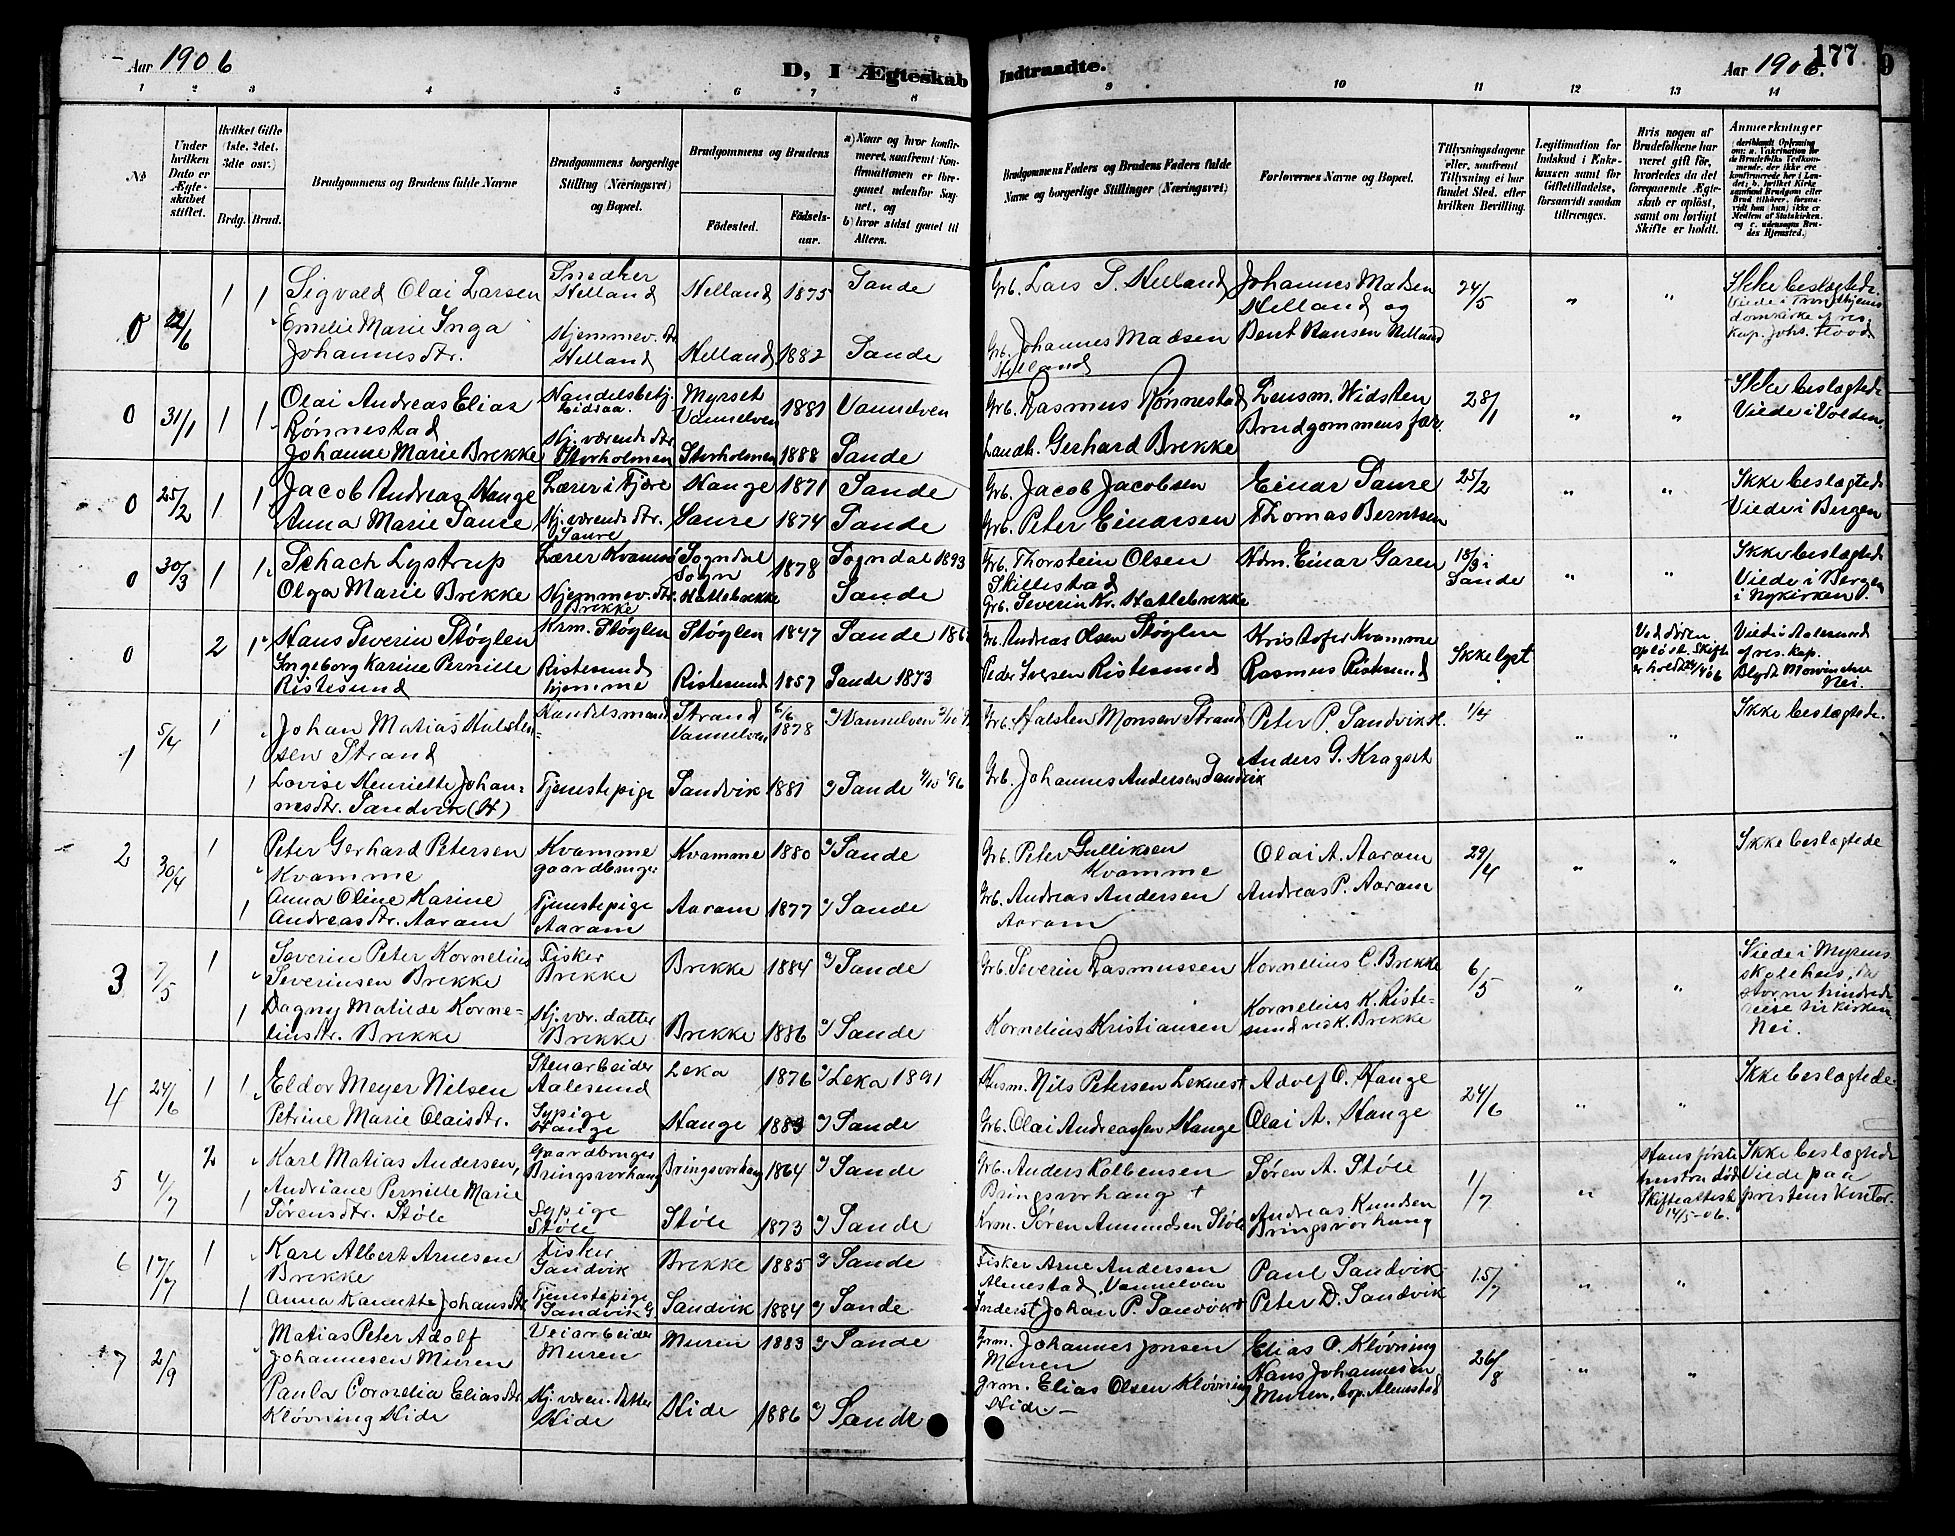 Aar 1906
D, I Ægteskab
Indtraadte.
Aar 1906.
177
1 2 3 4 5 6 7 8
9 10 11 12 13 14
No
Under hvilken Dato er Ægteskabet stiftet.
Hvilket Gifte (1ste, 2det, 3die osv.)
Brdg. Brud.
Brudgommens og Brudens fulde Navne
Brudgommens borgerlige Stilling (Næringsvei) og Bopæl.
Brudgommens og Brudens
Fødested.
Fødselsaar.
a) Naar og hvor konfirmeret, saafremt Konfirmationen er foregaaet udenfor Sognet, og
b) hvor sidst gaaet til Alters.
Brudgommens Faders og Brudens Faders fulde Navne og borgerlige Stillinger (Næringsvei)
Forlovernes Navne og Bopæl.
Tillysningsdagene eller, saafremt Tillysning ei har fundet Sted, efter hvilken Bevilling.
Legitimation for Indskud i Enkekassen samt for Giftetilladelse, forsaavidt saadan tiltrænges.
Hvis nogen af Brudefolkene har været gift før, hvorledes da det foregaaende Ægteskab er opløst, samt om lovligt Skifte er holdt.
Anmærkninger
0 22/6 1 1
Sigvald Olai Larsen
Snedker Helland
Helland 1875 Sande
Grb. Lars P. Helland
Johannes Madsen Helland og
Bent Hansen Helland
24/5 " "
Ikke beslægtede. Viede i Trondhjems domkirke af res. kap. Johs. Flood.
Emelie Marie Inga
Johannesdtr.
Hjemmev. dtr. Helland
Helland 1882 Sande
Grb. Johannes Madsen
Helland
0 31/1 1 1
Olai Andreas Elias
Rønnestad
Handelsbetj. Eidsaa.
Myrset Vannelven 1881 Vannelven
Grb. Rasmus Rønnestad
Lensm. Widsten
Brudgommens far.
28/1 " "
Ikke beslægtede
Viede i Volden.
Johanne Marie Brekke
Hj. værende dtr. Storholmen
Storholmen 1888 Sande
Landh. Gerhard Brekke
0 25/2 1 1
Jacob Andreas Hauge
Lærer i Fjære
Hauge 1871 Sande
Grb. Jacob Jacobsen
Einar Saure
25/2 " "
Ikke beslægtede
Viede i Bergen
Anna Marie Saure
Hj. værende dtr. Saure
Saure 1874 Sande
Grb. Peter Einarsen
Thomas Berntsen
0 30/3 1 1
Schach Lystrup
Lærer Kvamsø
Sogndal Sogn 1878 Sogndal 1893
Grb. Thorstein Olsen
Skillestad
Hdm. Einar Garen
18/3 i Sande " "
Ikke beslægtede
Viede i Bergen
i Nykirken
Olga Marie Brekke
Hjemmev. dtr. Brekke
Hatlebrekke Sande
Grb. Severin Kr. Hatlebrekke
0 2 1
Hans Severin Støylen
Krm. Støylen
Støylen 1847 Sande
Grb. Andreas Olsen Støylen
Kristofer Kvamme
Ikke lyst
Ved døden opløst. Skifte er holdt
Viede i Aalesund
af res. kap.
Nei.
Ingeborg Karine Pernille
Ristesund
Ristesund hjemme
Ristesund 1857 Sande 1873
Peder Iversen Ristesund
Rasmus Ristesund
1 5/4 1
Johan Matias Halsten-
sen Strand
Handelsmand
Strand Vannelven 6/6 1878 a) Vannelven
Grb. Halsten Monsen Strand
Peter P. Sandvik H.
1/4 " "
Ikke beslægtede.
1
Lovise Henriette Johan-
nesdtr. Sandvik (H)
Tjenestepige
Sandvik 1881 a) Sande 4/10 96
Grb. Johannes Andersen Sandvik
Anders G. Kragset
2 30/4 1
Peter Gerhard Petersen
Kvamme
Kvamme gaardbruger
Kvamme 1880 a) Sande
Grb. Peter Gulliksen
Kvamme
Olai A. Aaram
29/4 " "
Ikke beslægtede
1
Anna Oline Karine
Andreasdtr. Aaram
Tjenstepige Aaram
Aaram 1877 a) Sande
Grb. Andreas Andersen
Aaram
Andreas P. Aaram
3 7/5 1
Severin Peter Kornelius
Severinsen Brekke
Fisker Brekke
Brekke 1884 a) Sande
Grb. Severin Rasmussen
Kornelius C. Brekke
6/5 " "
Viede i Myrens
skolehus, da
storm hindrede
reise til kirken
Nei.
1
Dagny Matilde Korne-
liusdtr. Brekke
Hj. vær. datter Brekke
Brekke 1886 a) Sande
Kornelius Kristiansen
Kornelius K. Riste-
sundvisk. Brekke
4 24/6 1 1
Eldor Meyer Nilsen
Stenarbeider Aalesund
Leka 1876 a) Leka 1891
Husm. Nils Petersen Leknest
Adolf O. Hauge
24/6 " "
Ikke beslægtede.
Petrine Marie Olaisdtr.
Sypige Hauge
Hauge 1883 a) Sande
Grb. Olai Andreassen Hauge
Olai A. Hauge
5 4/7 2
Karl Matias Andersen,
Gaardbruger Bringsvorhaug
Bringsvorhaug 1864 a) Sande
Grb. Anders Kolbensen
Bringsvorhaug †
Søren A. Støle
1/7 "
Hans første hustru død Skifteattest 14/5-06.
Ikke beslægtede
Viede paa
prestens kontor.
1
Andriane Pernille Marie
Sørensdtr. Støle
Sypige Støle
Støle 1873 a) Sande
Krm. Søren Amundsen Støle
Andreas Knudsen
Bringsvorhaug
6 17/7 1
Karl Albert Arnesen
Brekke
Fisker Sandvik
Brekke 1885 a) Sande
Fisker Arne Andersen
Almestad, Vannelven
Paul Sandvik
15/7 " "
1
Anna Kanutte Johansdtr.
Tjenestepige Sandvik G.
Sandvik 1884 a) Sande
Inderst Johan P. Sandvik †
Peter D. Sandvik
7 2/9
Matias Peter Adolf
Johannesen Muren
Veiarbeider Muren
Muren 1883 a) Sande
Grm. Johannes Jonsen
Muren
Elias O. Kløvning
26/8 " "
Paula Cornelia Eliasdtr.
Kløvning Hide
Hj. væren. datter Hide
Hide 1886 a) Sande
Grm. Elias Olsen Kløvning
Hide.
Hans Johannesen
Muren, bop. Almestad